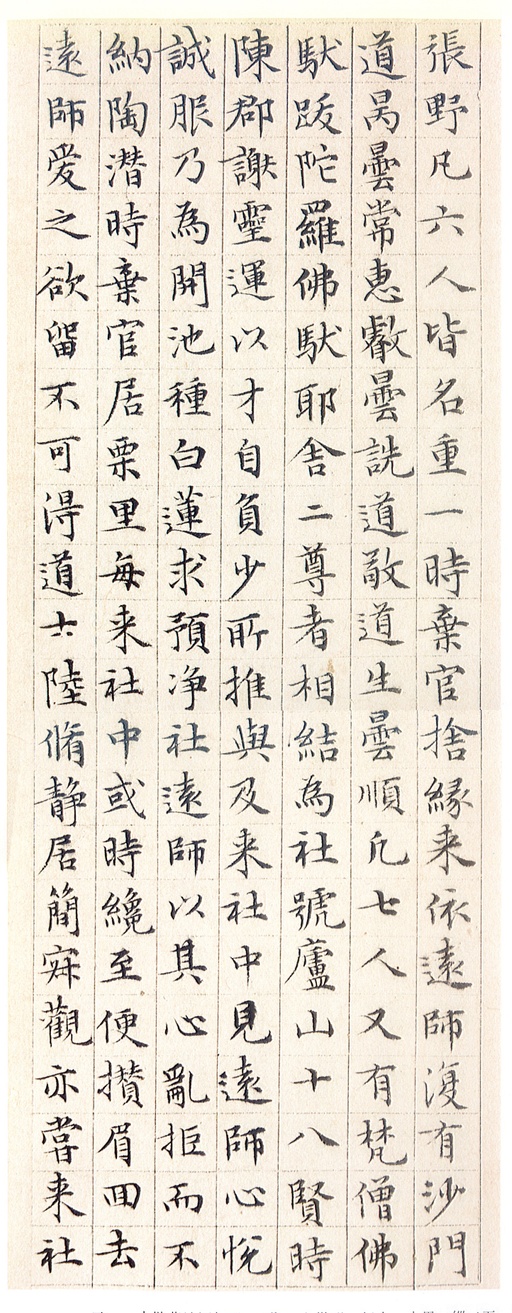 張野凡六人皆名重一時棄官捨緣来依遠師復有沙門
道昺曇常惠叡曇詵道敬道生曇順凡七人又有梵僧佛
馱跋陀羅佛馱耶舍二尊者相結為社號廬山十八賢時
陳郡謝靈運以才自負少所推與及来社中見遠師心悅
誠服乃為開池種白蓮求預净社遠師以其心亂拒而不
納陶潛時棄官居栗里每来社中或時纔至便攢眉回去
遠師愛之欲留不可得道士陸脩静居簡寂觀亦嘗来社